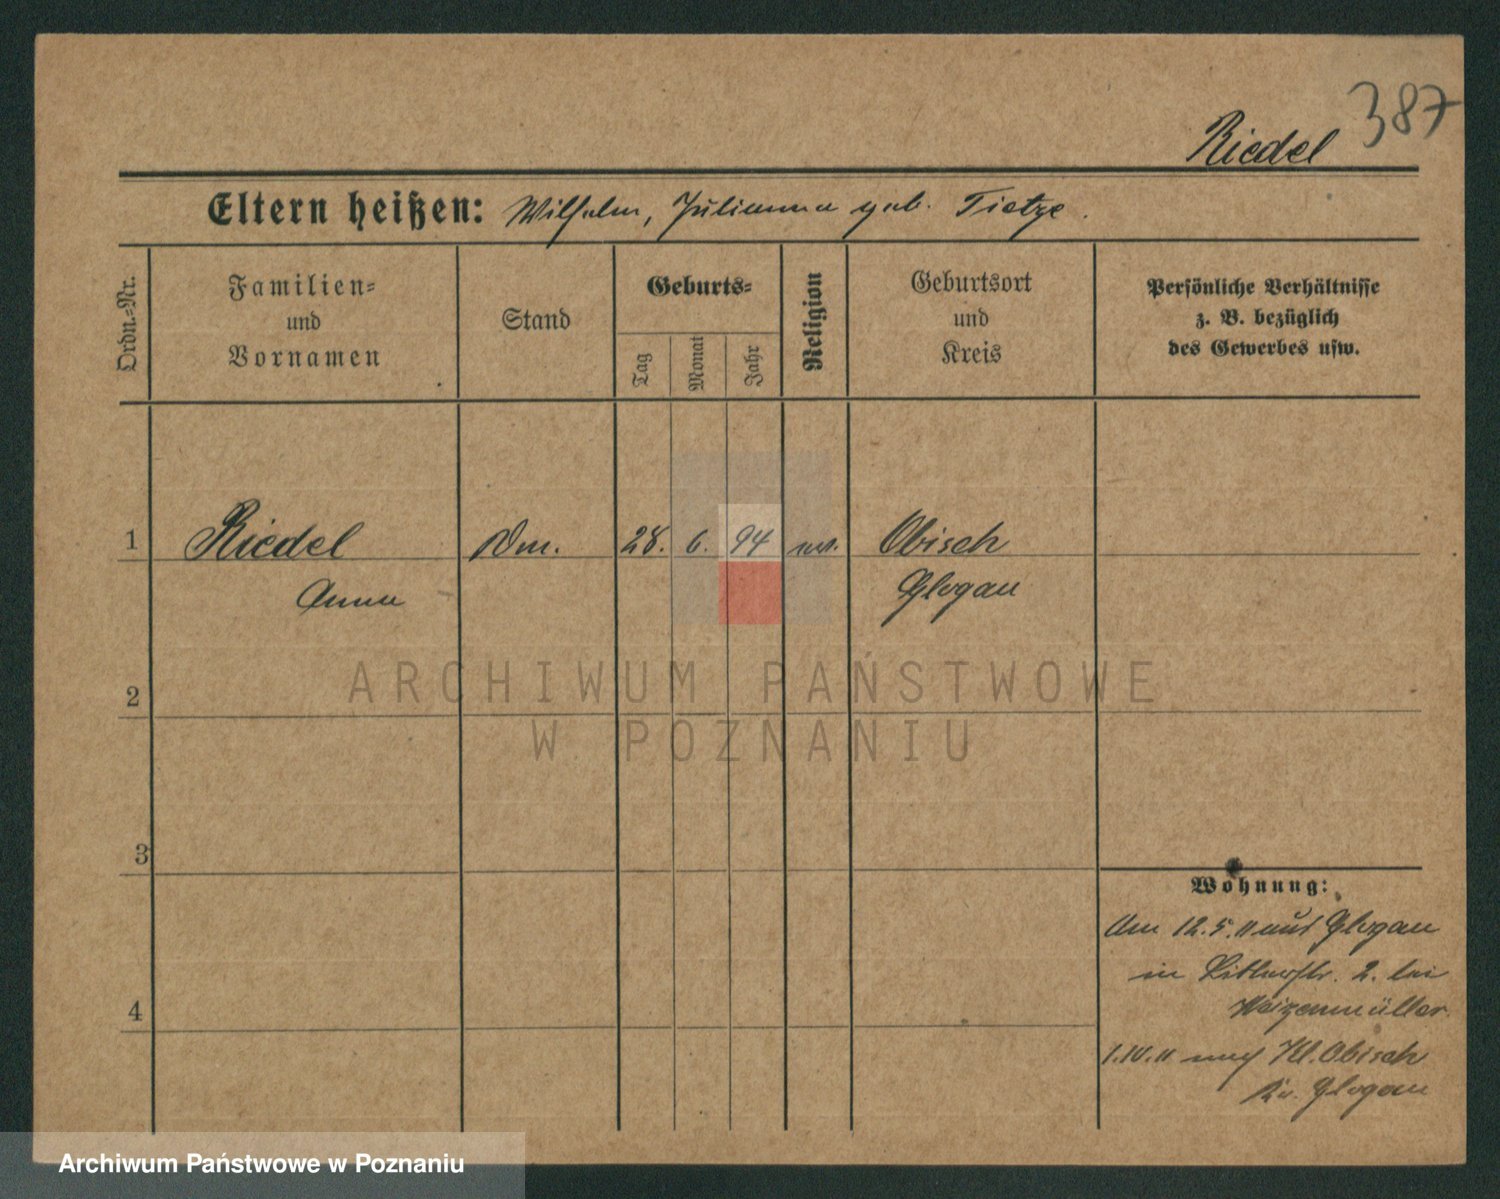 387
Riedel
Eltern heißen: Wilhelm, Julianna geb. Tietze.
Ordn.-Nr.
Familien-
und
Vornamen
Stand
Geburts-
Tag
Monat
Jahr
Religion
Geburtsort
und
Kreis
Persönliche Verhältnisse
z. B. bezüglich
des Gewerbes usw.
1
Riedel
Dm.
28.
6.
94
ev.
Obisch
Anna
Glogau
2
ARCHIWUM PAŃSTWOWE
W POZNANIU
3
Wohnung:
Am 12.5.11 aus Glogau
in 2. bei
Weizenmüller.
4
1.10.11 nach Kl. Obisch
Kr. Glogau
Archiwum Państwowe w Poznaniu